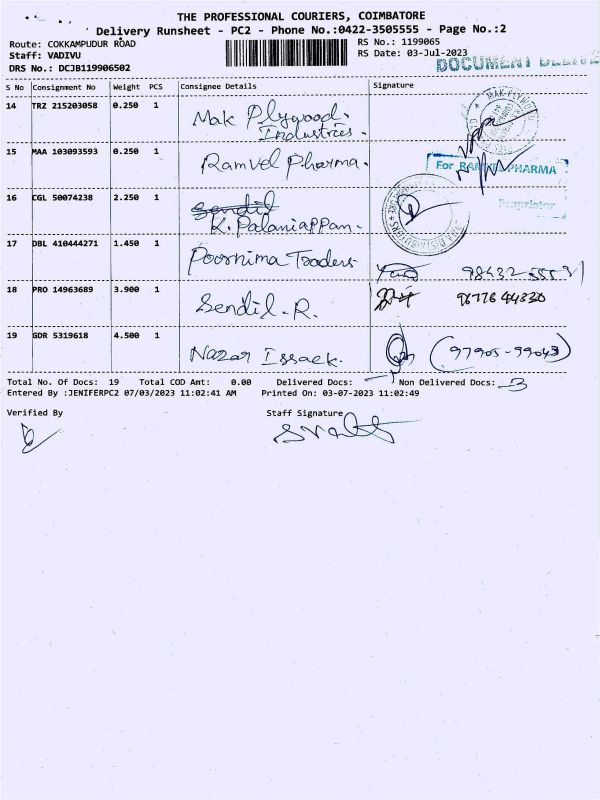 THE PROFESSIONAL COURIERS, COIMBATORE
Delivery Runsheet - PC2 - Phone No.:0422-3505555 - Page No.:2
Route: COKKAMPUDUR ROAD
Staff: VADIVU
DRS No.: DCJB119906502
RS No.: 1199065
RS Date: 03-Jul-2023
DOCUMENT
S No Consignment No Weight PCS Consignee Details Signature
14 TRZ 215203058 0.250 1 Mak Plywood
Industries.
MAK PLYWOOD
15 MAA 103093593 0.250 1 Ramvel Pharma.
For RAMVEL PHARMA
Proprietor
16 CGL 50074238 2.250 1 Sendil
K. Palaniappan.
17 DBL 410444271 1.450 1 Poornima Traders
18 PRO 14963689 3.900 1 Sendil. R. 96776 44330
19 GDR 5319618 4.500 1 Nazar Issack. (97905-99043)
Total No. Of Docs: 19 Total COD Amt: 0.00 Delivered Docs: Non Delivered Docs: 3
Entered By :JENIFERPC2 07/03/2023 11:02:41 AM Printed On: 03-07-2023 11:02:49
Verified By
Staff Signature